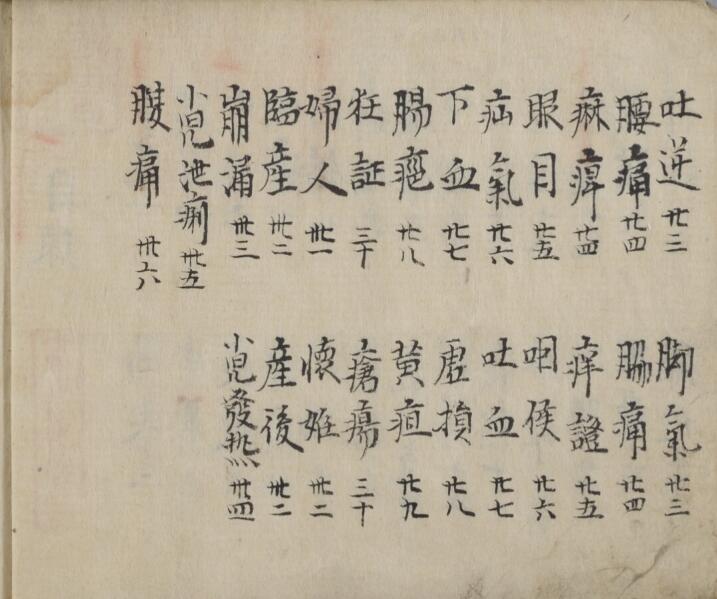 吐逆 廿三
腰痛 廿四
麻痺 廿四
眼目 廿五
疝氣 廿六
下血 廿七
腸癰 廿八
狂証 三十
婦人 卅一
臨産 卅二
崩漏 卅三
小児泄痢 卅五
腹痛 卅六
脚氣 廿三
脇痛 廿四
痒證 廿五
咽喉 廿六
吐血 廿七
虚損 廿八
黄疸 廿九
瘡瘍 三十
懐妊 卅二
産後 卅二
小児發熱 卅四